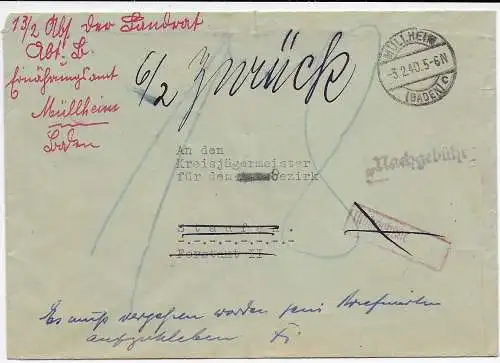 13/2 Abs. der Landrat
Abt. L.
Ernährungsamt
Müllheim
Baden
6/2 Zurück
MÜLLHEIM
-3.2.40.5-6N
(BADEN) c
Nachgebühr
An den
Kreisjägermeister
für den Bezirk
Staufen
Forstamt II
Es muß vergessen worden sein Briefmarken
aufzukleben